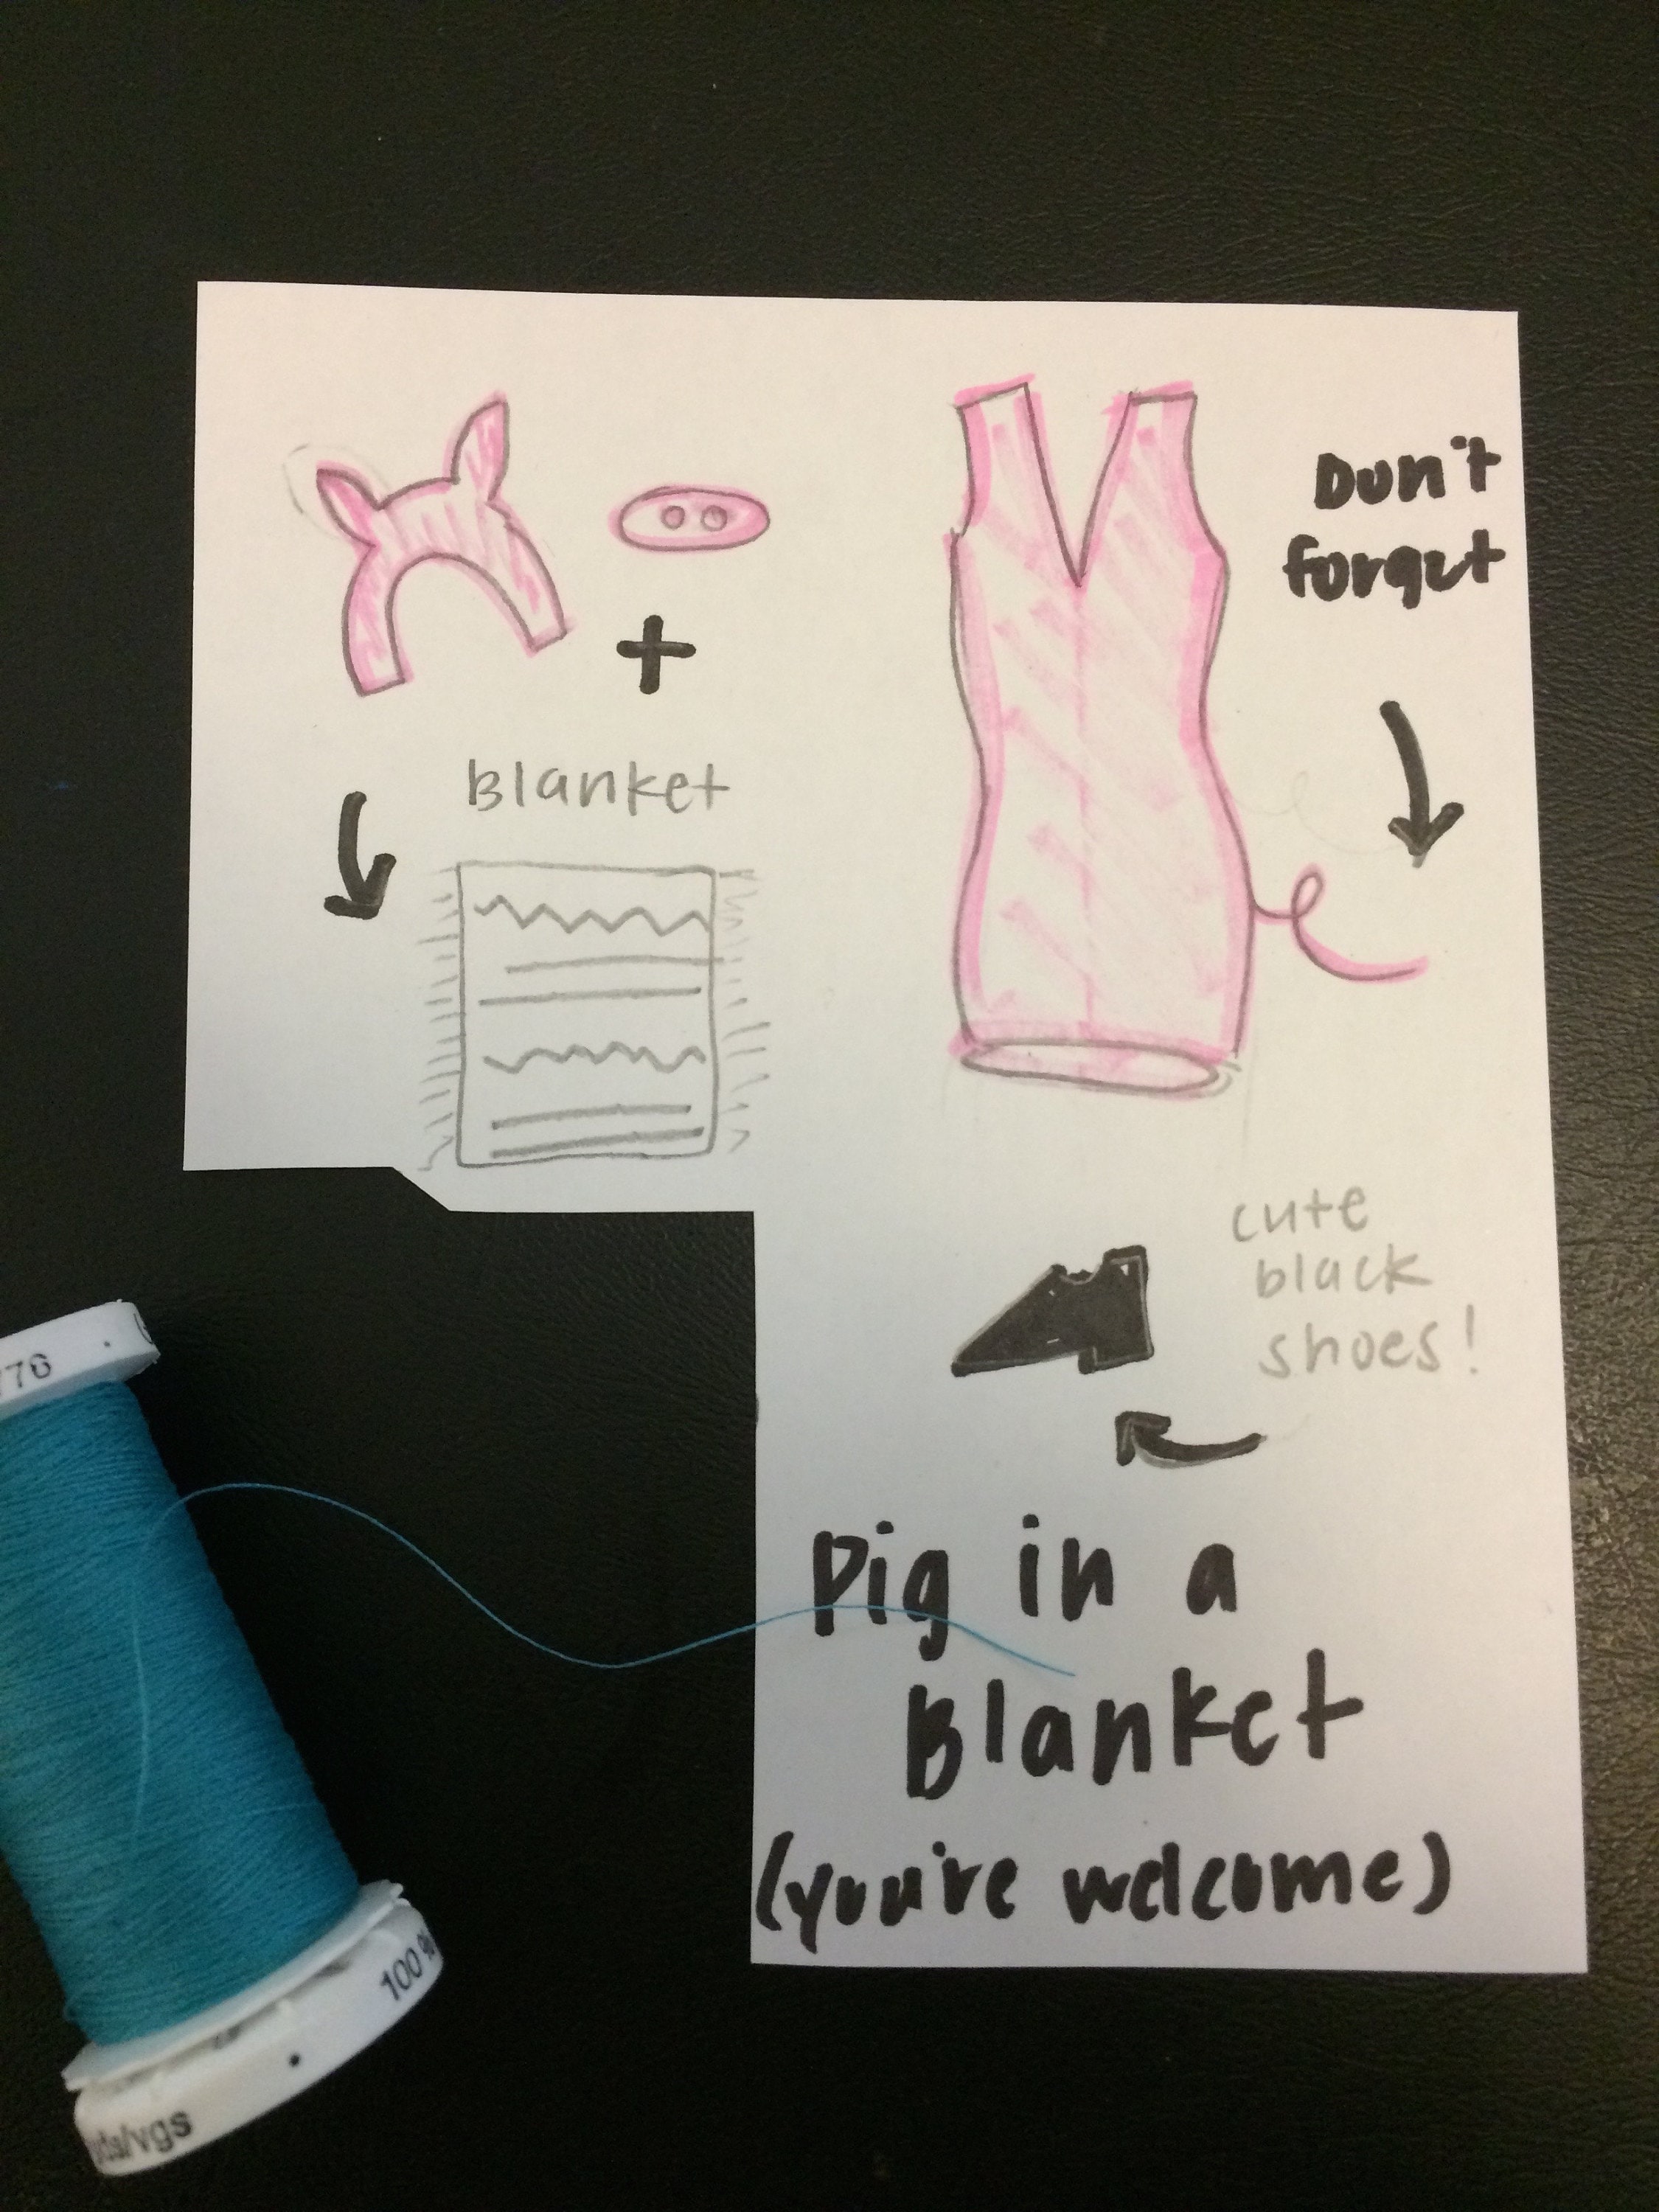 Don't
forget
+
Blanket
cute
black
shoes!
Pig in a
Blanket
(you're welcome)
776
100%
yds/vgs